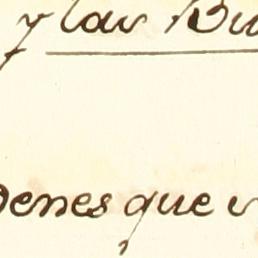 y las Bu
denes que